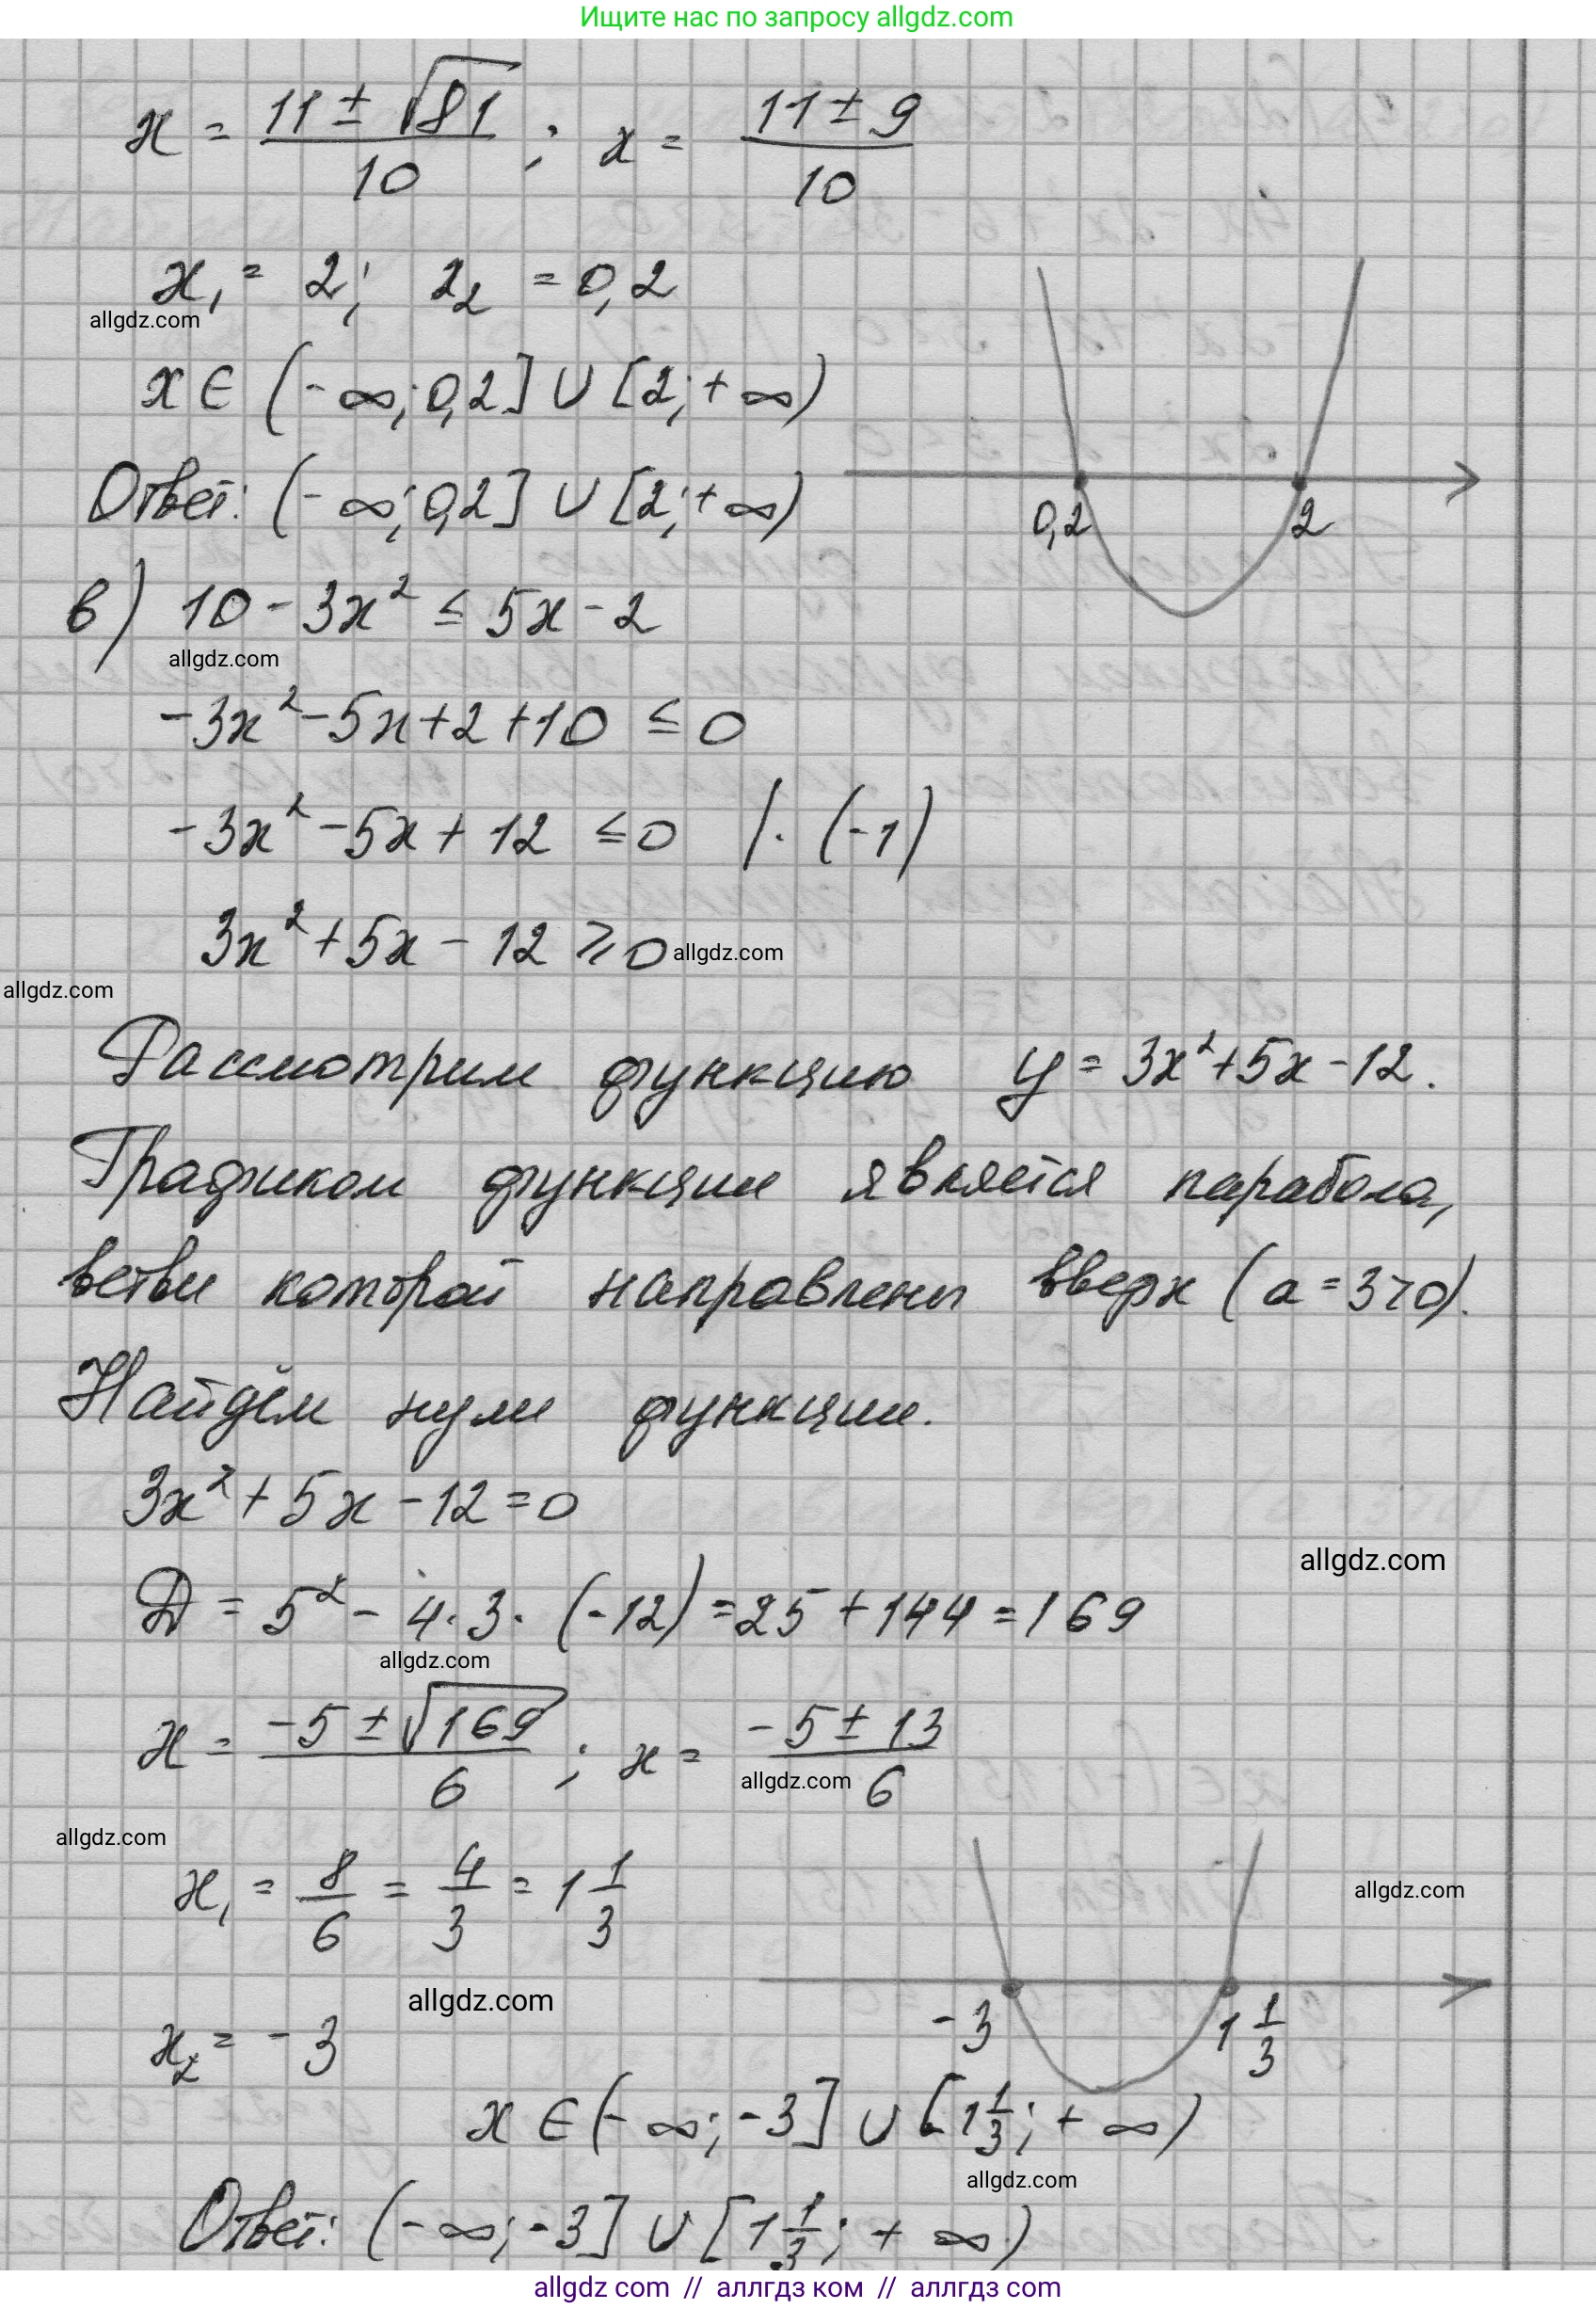 Ищите нас по запросу allgdz.com
x = (11 ± √81)/10 ; x = (11 ± 9)/10
x₁ = 2; x₂ = 0,2
allgdz.com
x ∈ (-∞; 0,2] ∪ [2; +∞)
Ответ: (-∞; 0,2] ∪ [2; +∞)
0,2 2
в) 10 - 3x² ≤ 5x - 2
allgdz.com
-3x² - 5x + 2 + 10 ≤ 0
-3x² - 5x + 12 ≤ 0 |· (-1)
3x² + 5x - 12 ≥ 0 allgdz.com
allgdz.com
Рассмотрим функцию y = 3x² + 5x - 12.
Графиком функции является парабола,
ветви которой направлены вверх (a = 3 > 0).
Найдём нули функции.
3x² + 5x - 12 = 0
allgdz.com
D = 5² - 4 · 3 · (-12) = 25 + 144 = 169
allgdz.com
x = (-5 ± √169)/6 ; x = (-5 ± 13)/6
allgdz.com
allgdz.com
x₁ = 8/6 = 4/3 = 1 1/3
allgdz.com
allgdz.com
-3 1 1/3
x₂ = -3
x ∈ (-∞; -3] ∪ [1 1/3; +∞)
allgdz.com
Ответ: (-∞; -3] ∪ [1 1/3; +∞)
allgdz com // аллгдз ком // аллгдз com